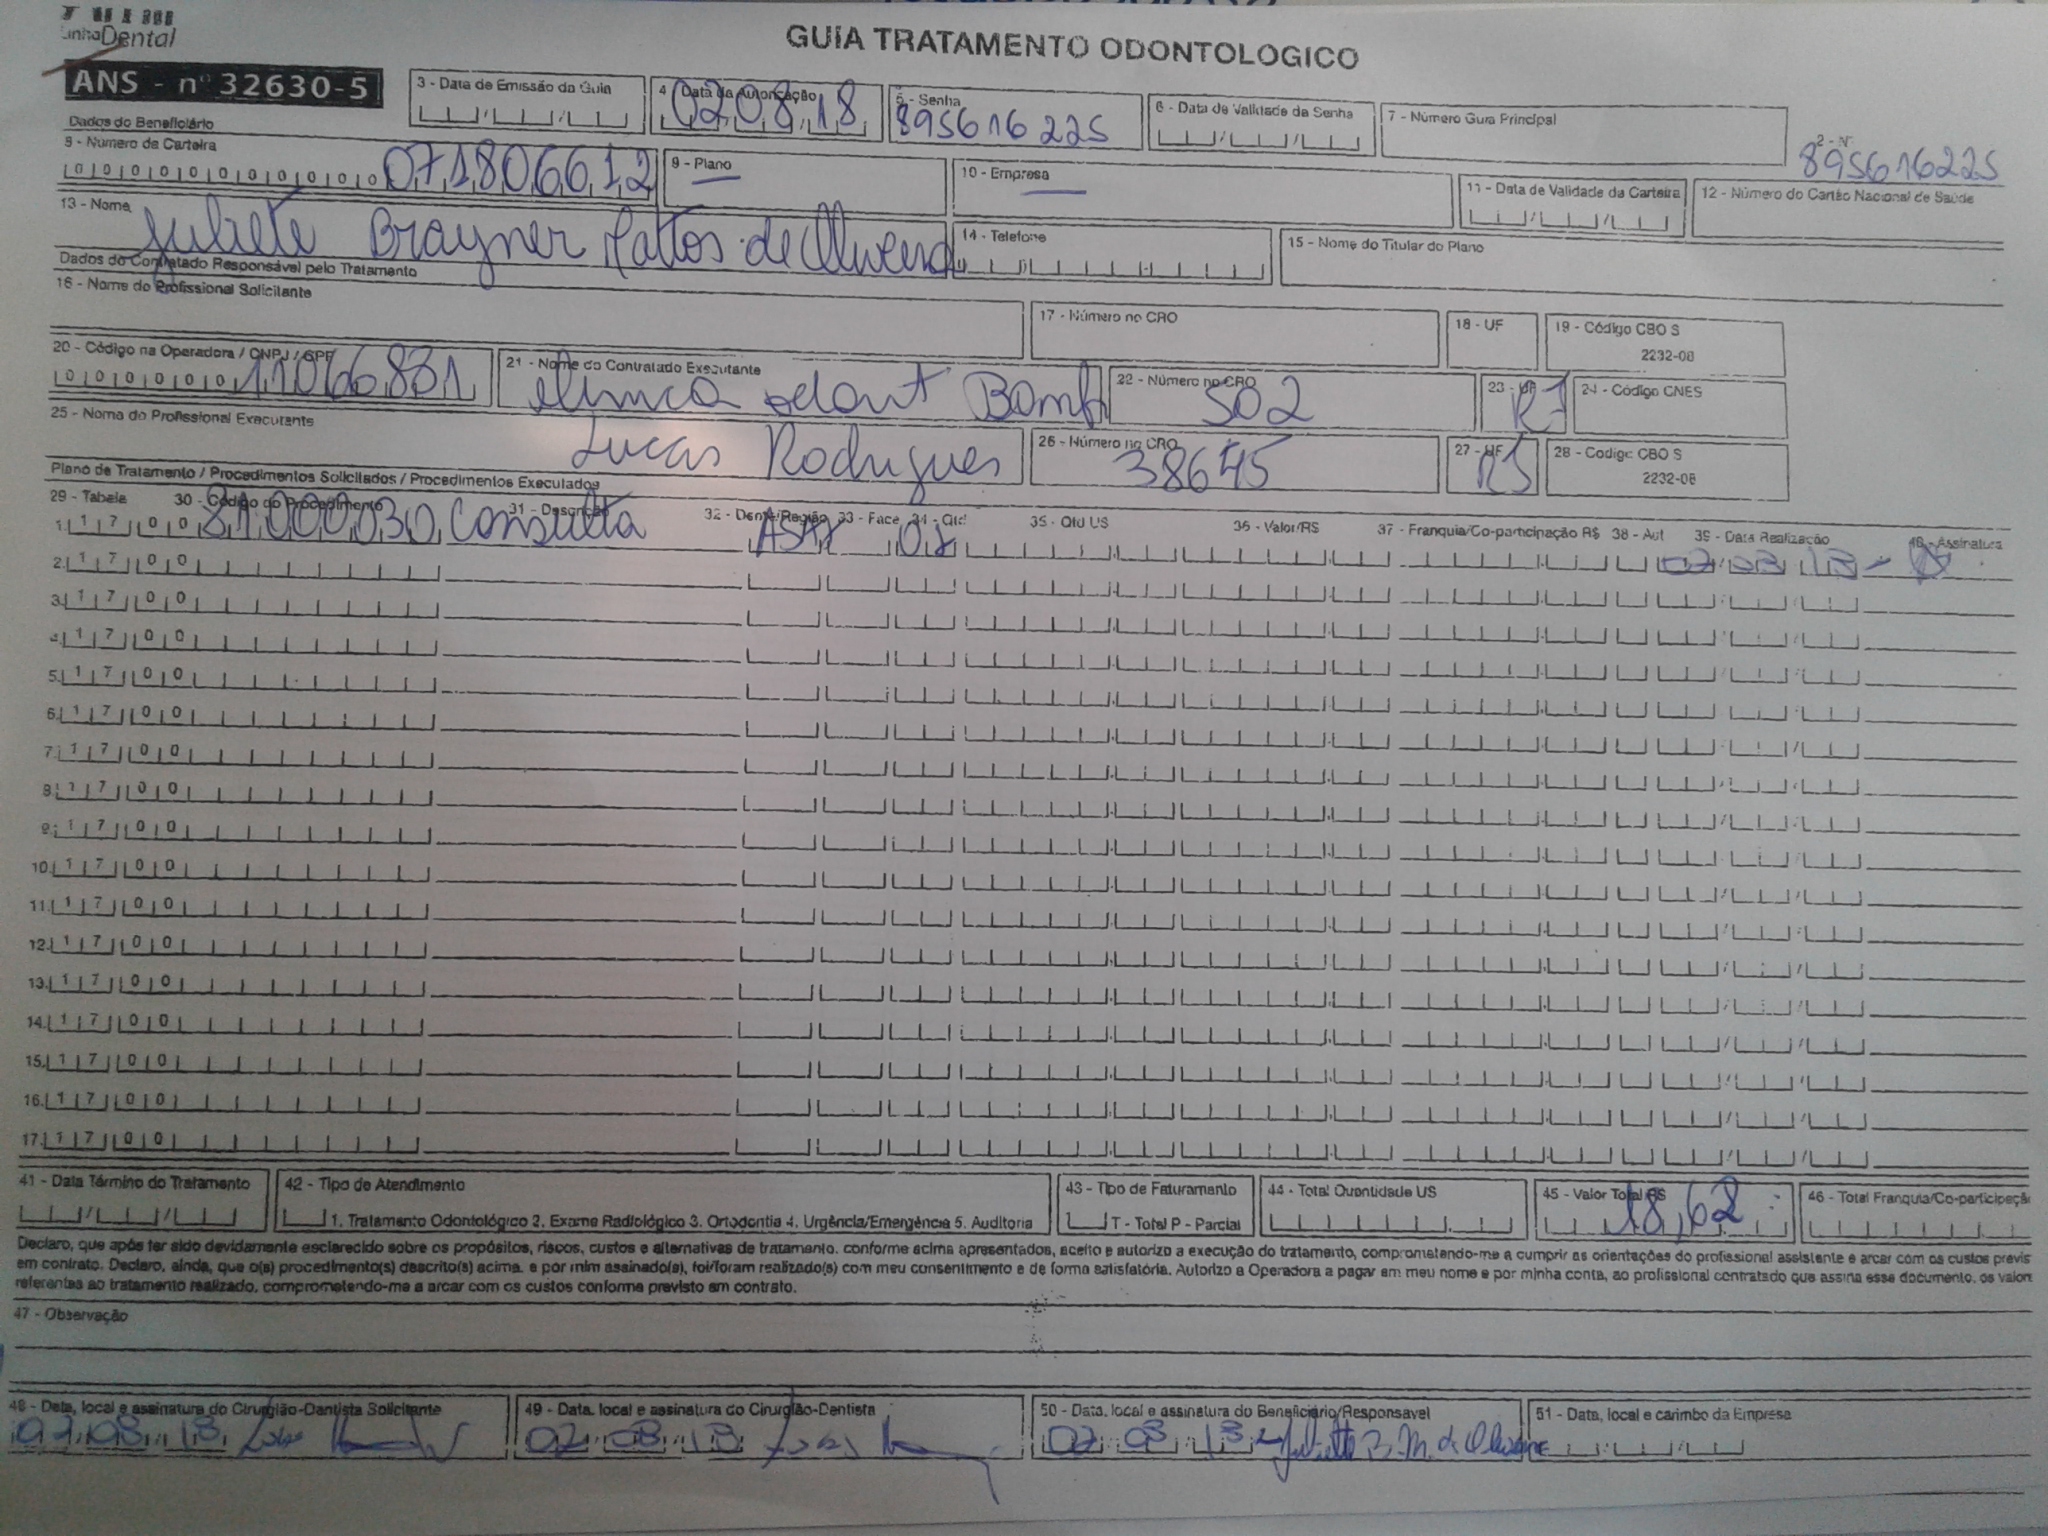 LinhaDental
GUIA TRATAMENTO ODONTOLOGICO
2 - Nº
895616225
ANS - nº 32630-5
3 - Data de Emissão da Guia
4 Data da Autorização
02 08 18
5 - Senha
895616225
6 - Data de Validade da Senha
7 - Número Guia Principal
Dados do Beneficiário
8 - Número da Carteira
0 0 0 0 0 0 0 0 0 0 0 0 0 7 1 8 0 6 6 1 2
9 - Plano
—
10 - Empresa
—
11 - Data de Validade da Carteira
12 - Número do Cartão Nacional de Saúde
13 - Nome
Brayner Mattos de Oliveira
14 - Telefone
15 - Nome do Titular do Plano
Dados do Contratado Responsável pelo Tratamento
16 - Nome do Profissional Solicitante
17 - Número no CRO
18 - UF
19 - Código CBO S
2232-08
20 - Código na Operadora / CNPJ / CPF
21 - Nome do Contratado Executante
22 - Número no CRO
502
23 - UF
RJ
24 - Código CNES
25 - Nome do Profissional Executante
Lucas Rodrigues
26 - Número no CRO
38645
27 - UF
RJ
28 - Codigo CBO S
2232-08
Plano de Tratamento / Procedimentos Solicitados / Procedimentos Executados
29 - Tabela 30 - Código do Procedimento 31 - Descrição 32 - Dente/Região 33 - Face 34 - Qtd 35 - Qtd US 36 - Valor/R$ 37 - Franquia/Co-participação R$ 38 - Aut 39 - Data Realização 40 - Assinatura
1. 1 7 0 0 81000030 Consulta ASAI 01 02/08/18
2. 1 7 0 0
3. 1 7 0 0
4. 1 7 0 0
5. 1 7 0 0
6. 1 7 0 0
7. 1 7 0 0
8. 1 7 0 0
9. 1 7 0 0
10. 1 7 0 0
11. 1 7 0 0
12. 1 7 0 0
13. 1 7 0 0
14. 1 7 0 0
15. 1 7 0 0
16. 1 7 0 0
17. 1 7 0 0
41 - Data Término do Tratamento
42 - Tipo de Atendimento
1. Tratamento Odontológico 2. Exame Radiológico 3. Ortodontia 4. Urgência/Emergência 5. Auditoria
43 - Tipo de Faturamento
T - Total P - Parcial
44 - Total Quantidade US
45 - Valor Total R$
18,62
46 - Total Franquia/Co-participaçã
Declaro, que após ter sido devidamente esclarecido sobre os propósitos, riscos, custos e alternativas de tratamento, conforme acima apresentados, aceito e autorizo a execução do tratamento, comprometendo-me a cumprir as orientações do profissional assistente e arcar com os custos previs
em contrato. Declaro, ainda, que o(s) procedimento(s) descrito(s) acima, e por mim assinado(s), foi/foram realizado(s) com meu consentimento e de forma satisfatória. Autorizo a Operadora a pagar em meu nome e por minha conta, ao profissional contratado que assina esse documento, os valor
referentes ao tratamento realizado, comprometendo-me a arcar com os custos conforme previsto em contrato.
47 - Observação
48 - Data, local e assinatura do Cirurgião-Dentista Solicitante
02 08 18
49 - Data, local e assinatura do Cirurgião-Dentista
02 08 18
50 - Data, local e assinatura do Beneficiário/Responsável
02 08 18
51 - Data, local e carimbo da Empresa